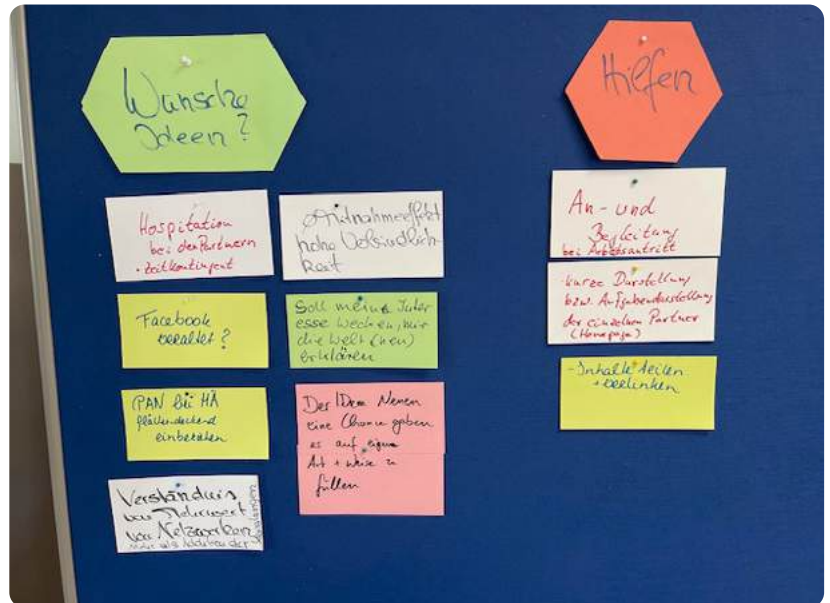 Wünsche
Ideen?
Hospitation
bei den Partnern
+ Zeitkontingent
Facebook
veraltet?
PAN bei HÄ
flächendeckend
einbeziehen
Verständnis
von Mehrwert
von Netzwerken
mehr als Addition der
Mitnahmeeffekt
hohe Verbindlich-
keit
Soll meine Inter
esse wecken, mir
die Welt (neu)
erklären
Der/Dem Neuen
eine Chance geben
es auf eigene
Art + Weise zu
füllen
Hilfen
An- und
Begleitung
bei Arbeitsantritt
-kurze Darstellung
bzw. Aufgabendarstellung
der einzelnen Partner
(Homepage)
-Inhalte teilen
+ verlinken